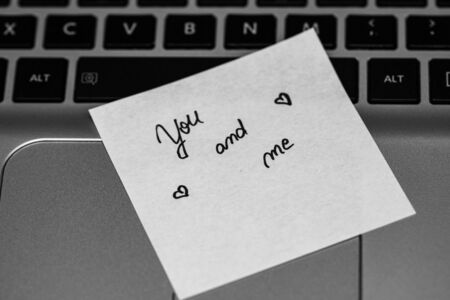 X C V B N M
ALT ALT
You
and
me